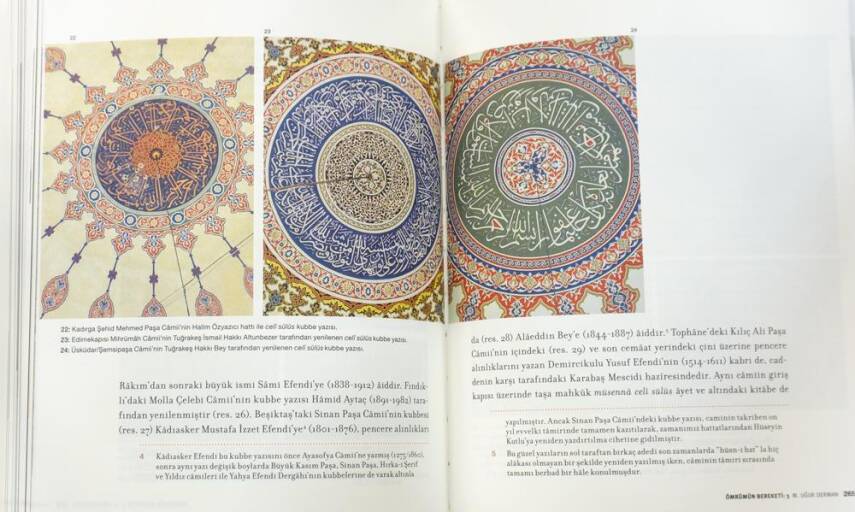 22
23
24
22: Kadırga Şehid Mehmed Paşa Câmii'nin Halim Özyazıcı hattı ile celî sülüs kubbe yazısı.
23: Edirnekapısı Mihrümâh Câmii'nin Tuğrakeş İsmail Hakkı Altunbezer tarafından yenilenen celî sülüs kubbe yazısı.
24: Üsküdar/Şemsipaşa Câmii'nin Tuğrakeş Hakkı Bey tarafından yenilenen celî sülüs kubbe yazısı.
Râkım'dan sonraki büyük ismi Sâmi Efendi'ye (1838-1912) âiddir. Fındık-
lı'daki Molla Çelebi Câmii'nin kubbe yazısı Hâmid Aytaç (1891-1982) tara-
fından yenilenmiştir (res. 26). Beşiktaş'taki Sinan Paşa Câmii'nin kubbesi
(res. 27) Kâdıasker Mustafa İzzet Efendi'ye⁴ (1801-1876), pencere alınlıkları
4 Kâdıasker Efendi bu kubbe yazısını önce Ayasofya Câmii'ne yazmış (1275/1860),
sonra aynı yazı değişik boylarda Büyük Kasım Paşa, Sinan Paşa, Hırka-i Şerif
ve Yıldız câmileri ile Yahya Efendi Dergâhı'nın kubbelerine de varak altınla
da (res. 28) Alâeddin Bey'e (1844-1887) âiddir.⁵ Tophâne'deki Kılıç Ali Paşa
Câmii'nin içindeki (res. 29) ve son cemâat yerindeki çini üzerine pencere
alınlıklarını yazan Demircikulu Yusuf Efendi'nin (1514-1611) kabri de, cad-
denin karşı tarafındaki Karabaş Mescidi hazîresindedir. Aynı câmiin giriş
kapısı üzerinde taşa mahkûk müsennâ celî sülüs âyet ve altındaki kitâbe de
yapılmıştır. Ancak Sinan Paşa Câmii'ndeki kubbe yazısı, caminin takriben on
yıl evvelki tâmirinde tamamen kazıtılarak, zamanımız hattatlarından Hüseyin
Kutlu'ya yeniden yazdırtılma cihetine gidilmiştir.
5 Bu güzel yazıların sol taraftan birkaç adedi son zamanlarda "hüsn-i hat" la hiç
alâkası olmayan bir şekilde yeniden yazılmış iken, câminin tâmiri sırasında
tamamı berbad bir hâle konulmuşdur.
ÖMRÜMÜN BEREKETİ: 3 M. UĞUR DERMAN 265